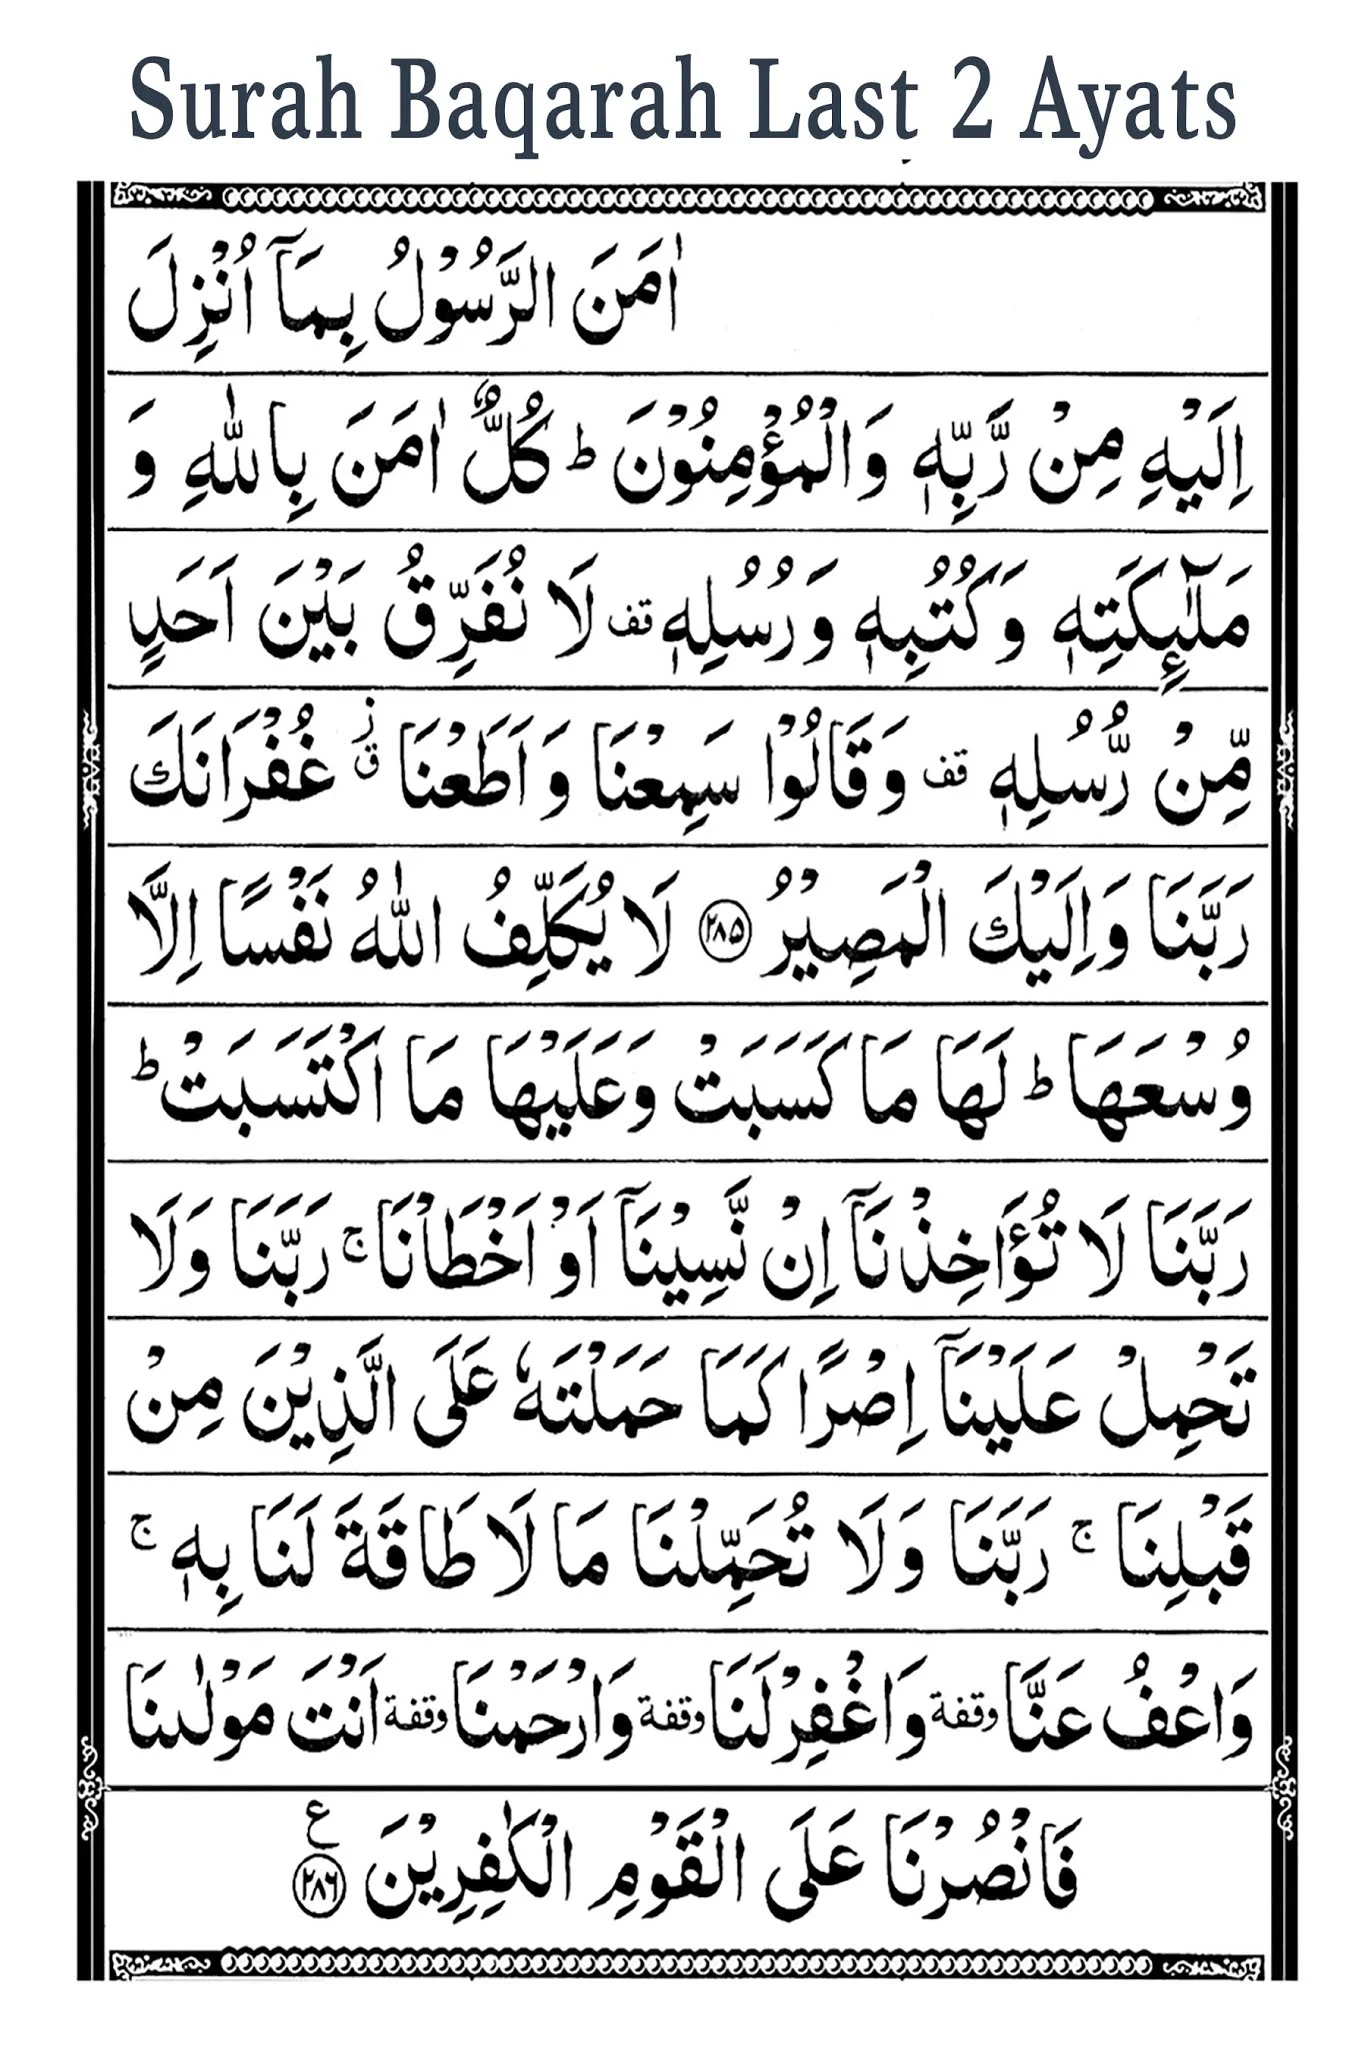 Surah Baqarah Last 2 Ayats
اٰمَنَ الرَّسُوْلُ بِمَاۤ اُنْزِلَ
اِلَيْهِ مِنْ رَّبِّهٖ وَالْمُؤْمِنُوْنَ ؕ كُلٌّ اٰمَنَ بِاللّٰهِ وَ
مَلٰٓئِكَتِهٖ وَكُتُبِهٖ وَرُسُلِهٖ قف لَا نُفَرِّقُ بَيْنَ اَحَدٍ
مِّنْ رُّسُلِهٖ قف وَقَالُوْا سَمِعْنَا وَاَطَعْنَا ز ق غُفْرَانَكَ
رَبَّنَا وَاِلَيْكَ الْمَصِيْرُ ۲۸۵ لَا يُكَلِّفُ اللّٰهُ نَفْسًا اِلَّا
وُسْعَهَا ؕ لَهَا مَا كَسَبَتْ وَعَلَيْهَا مَا اكْتَسَبَتْ ؕ
رَبَّنَا لَا تُؤَاخِذْنَاۤ اِنْ نَّسِيْنَاۤ اَوْ اَخْطَاْنَا ج رَبَّنَا وَلَا
تَحْمِلْ عَلَيْنَاۤ اِصْرًا كَمَا حَمَلْتَهٗ عَلَى الَّذِيْنَ مِنْ
قَبْلِنَا ج رَبَّنَا وَلَا تُحَمِّلْنَا مَا لَا طَاقَةَ لَنَا بِهٖ ج
وَاعْفُ عَنَّا وقفة وَاغْفِرْ لَنَا وقفة وَارْحَمْنَا وقفة اَنْتَ مَوْلٰىنَا
فَانْصُرْنَا عَلَى الْقَوْمِ الْكٰفِرِيْنَ ۲۸۶ ع